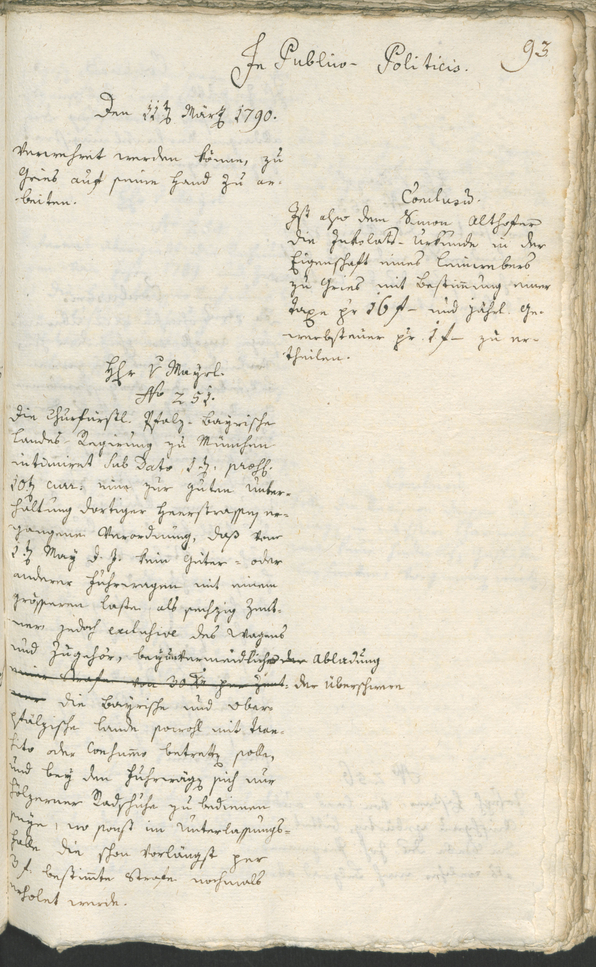 93
In Publico-Politicis.
Den 11tn Märtz 1790.
Verwehret werden könne, zu
Gries auf seine Hand zu ar-
beiten.
Conclusum.
Ist also dem Simon Althofer
die Inkolats-Urkunde in der
Eigenschaft eines
zu Gries mit Bestimmung einer
Taxe pr 16 f – und jährl. Ge-
werbsteuer pr. 1 f – zu er-
theilen.
Hhr v Mayrl.
No 251.
Die Churfürstl. Pfalz-Bayrische
Landes-Regierung zu München
intimiret sub Dato 1t, praes.
10t curr. eine zur guten Unter-
haltung dortiger Heerstrassen er-
gangene Verordnung, daß vom
1t May d. J. kein Güter- oder
anderer Fuhrwagen mit einem
grösseren Laste, als sechzig Zent-
ner jedoch exclusive des Wagens
und Zugehör, bey unvermeidlicher Abladung
der Überschwere
die Bayrische und Ober-
pfälzische Lande sowohl mit Tran-
sito oder Consumo betretten solle,
und bey den Fuhrwägen sich nur
hölzerner Radschuhe zu bedienen
seye, wo sonst im Unterlassungs-
falle die schon vorlängst per
3 f. bestimmte Strafe nochmals
erholet werde.